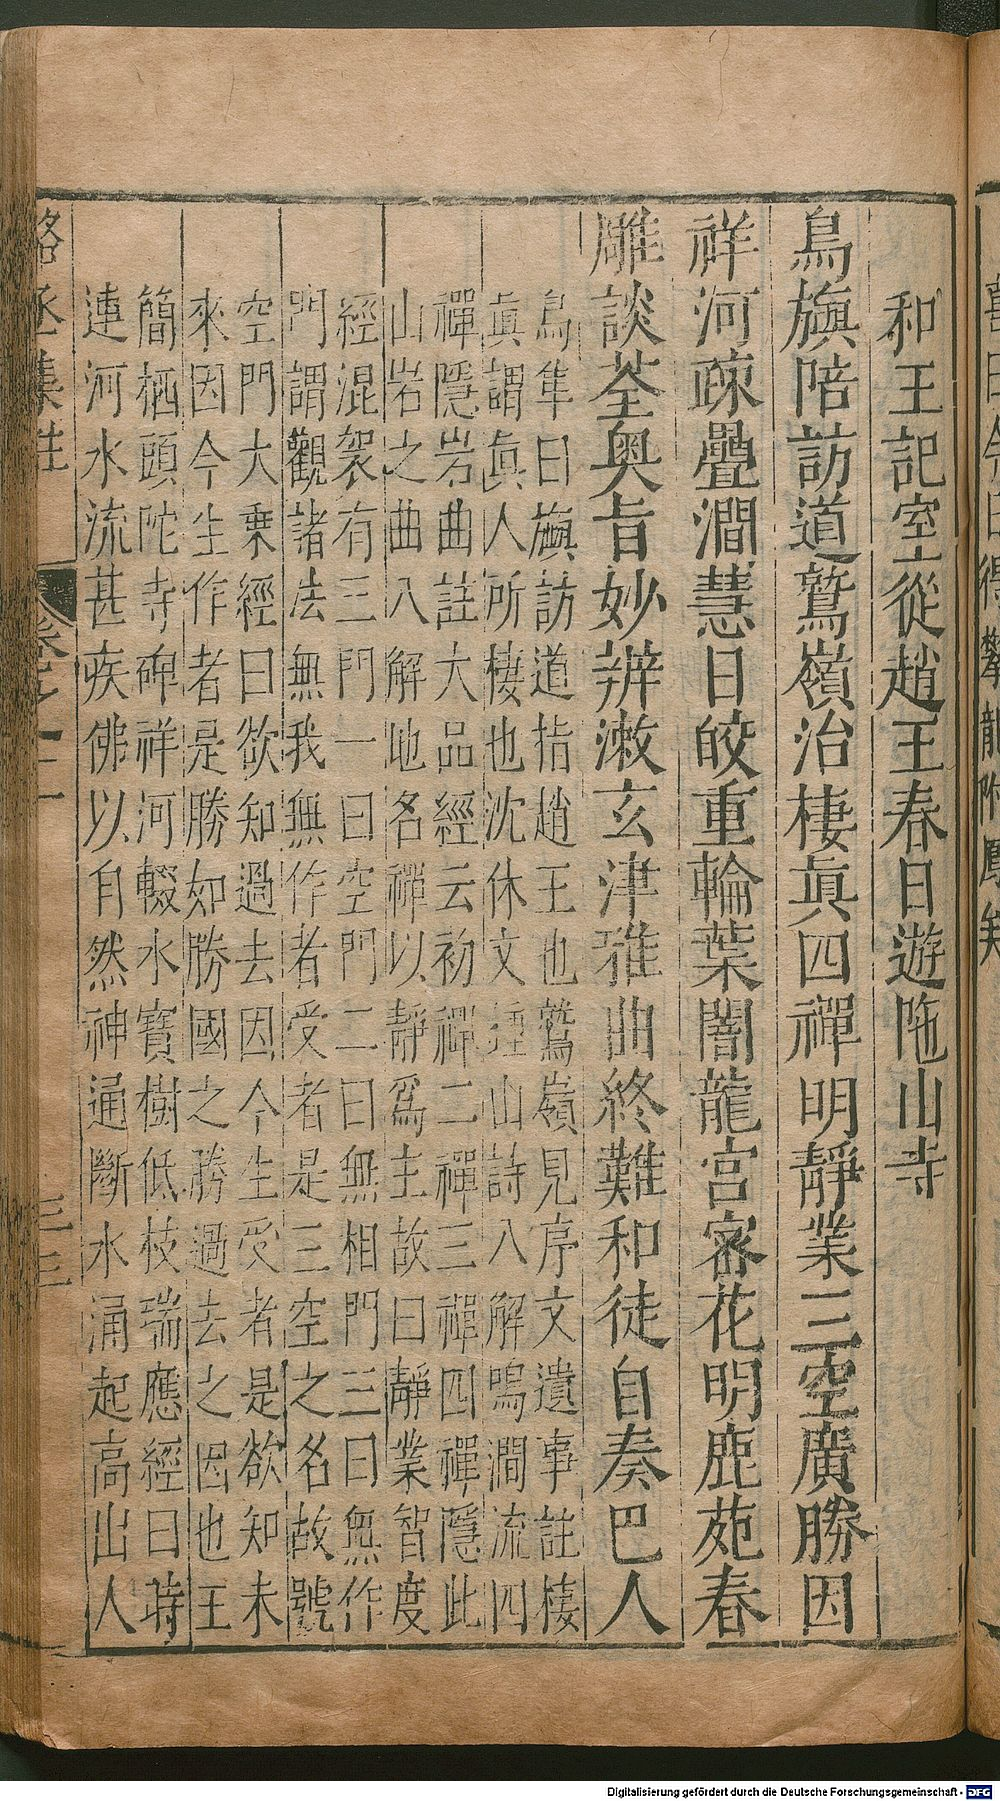 和王記室從趙王春日遊陁山寺
鳥旟陪訪道鷲嶺洽棲眞四禪明靜業三空廣勝因
祥河疎疊澗慧日皎重輪葉闇龍宮密花明鹿苑春
雕談荃奧旨妙辨漱玄津雅曲終難和徒自奏巴人
鳥隼曰旟訪道指趙王也鷲嶺見序文遺事註棲
眞謂眞人所棲也沈休文鍾山詩八解鳴澗流四
禪隱岩曲註大品經云初禪二禪三禪四禪隱此
山岩之曲八解地名禪以靜爲主故曰靜業智度
經混袈有三門一曰空門二曰無相門三曰無作
門謂觀諸法無我無作者受者是三空之名故號
空門大乗經曰欲知過去因今生受者是欲知未
來因今生作者是勝如勝國之勝過去之因也王
簡栖頭陀寺碑祥河輟水寶樹低枝瑞應經曰時
連河水流甚疾佛以自然神通斷水涌起高出人
駱丞集註 卷之二 三三
Digitalisierung gefördert durch die Deutsche Forschungsgemeinschaft - DFG